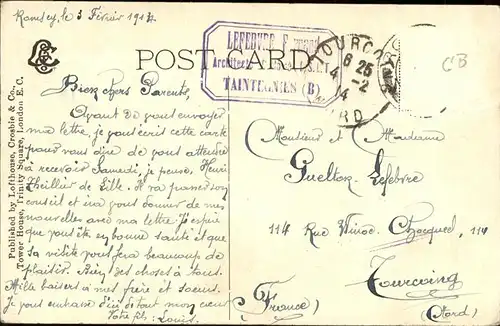 Ramsey, le 3 Février 1914
POST CARD
LEFEBVRE
Architecte
TAINTEGNIES (B)
TOURCOING
6 25
4-2
14
NORD
CB
Bien chers Parents,
Avant de vous envoyer
ma lettre, je vous écris cette carte
pour vous dire de vous attendre
à recevoir Samedi, je pense, Henri
Lhellier de Lille. Il va passer son
conseil et ira vous donner de mes
nouvelles avec ma lettre. J'espère
que vous êtes en bonne santé et que
sa visite vous fera beaucoup de
plaisir. Bien des choses à tous.
Mille baisers à mes frère et sœurs.
Je vous embrasse d'ici de tout mon cœur
Votre fils: Louis.
Monsieur et Madame
Guelton-Lefebvre
114 Rue Winoc Chocqueel, 114
Tourcoing
(France) (Nord)
Published by Lofthouse, Crosbie & Co.,
Tower House, Trinity Square, London E.C.